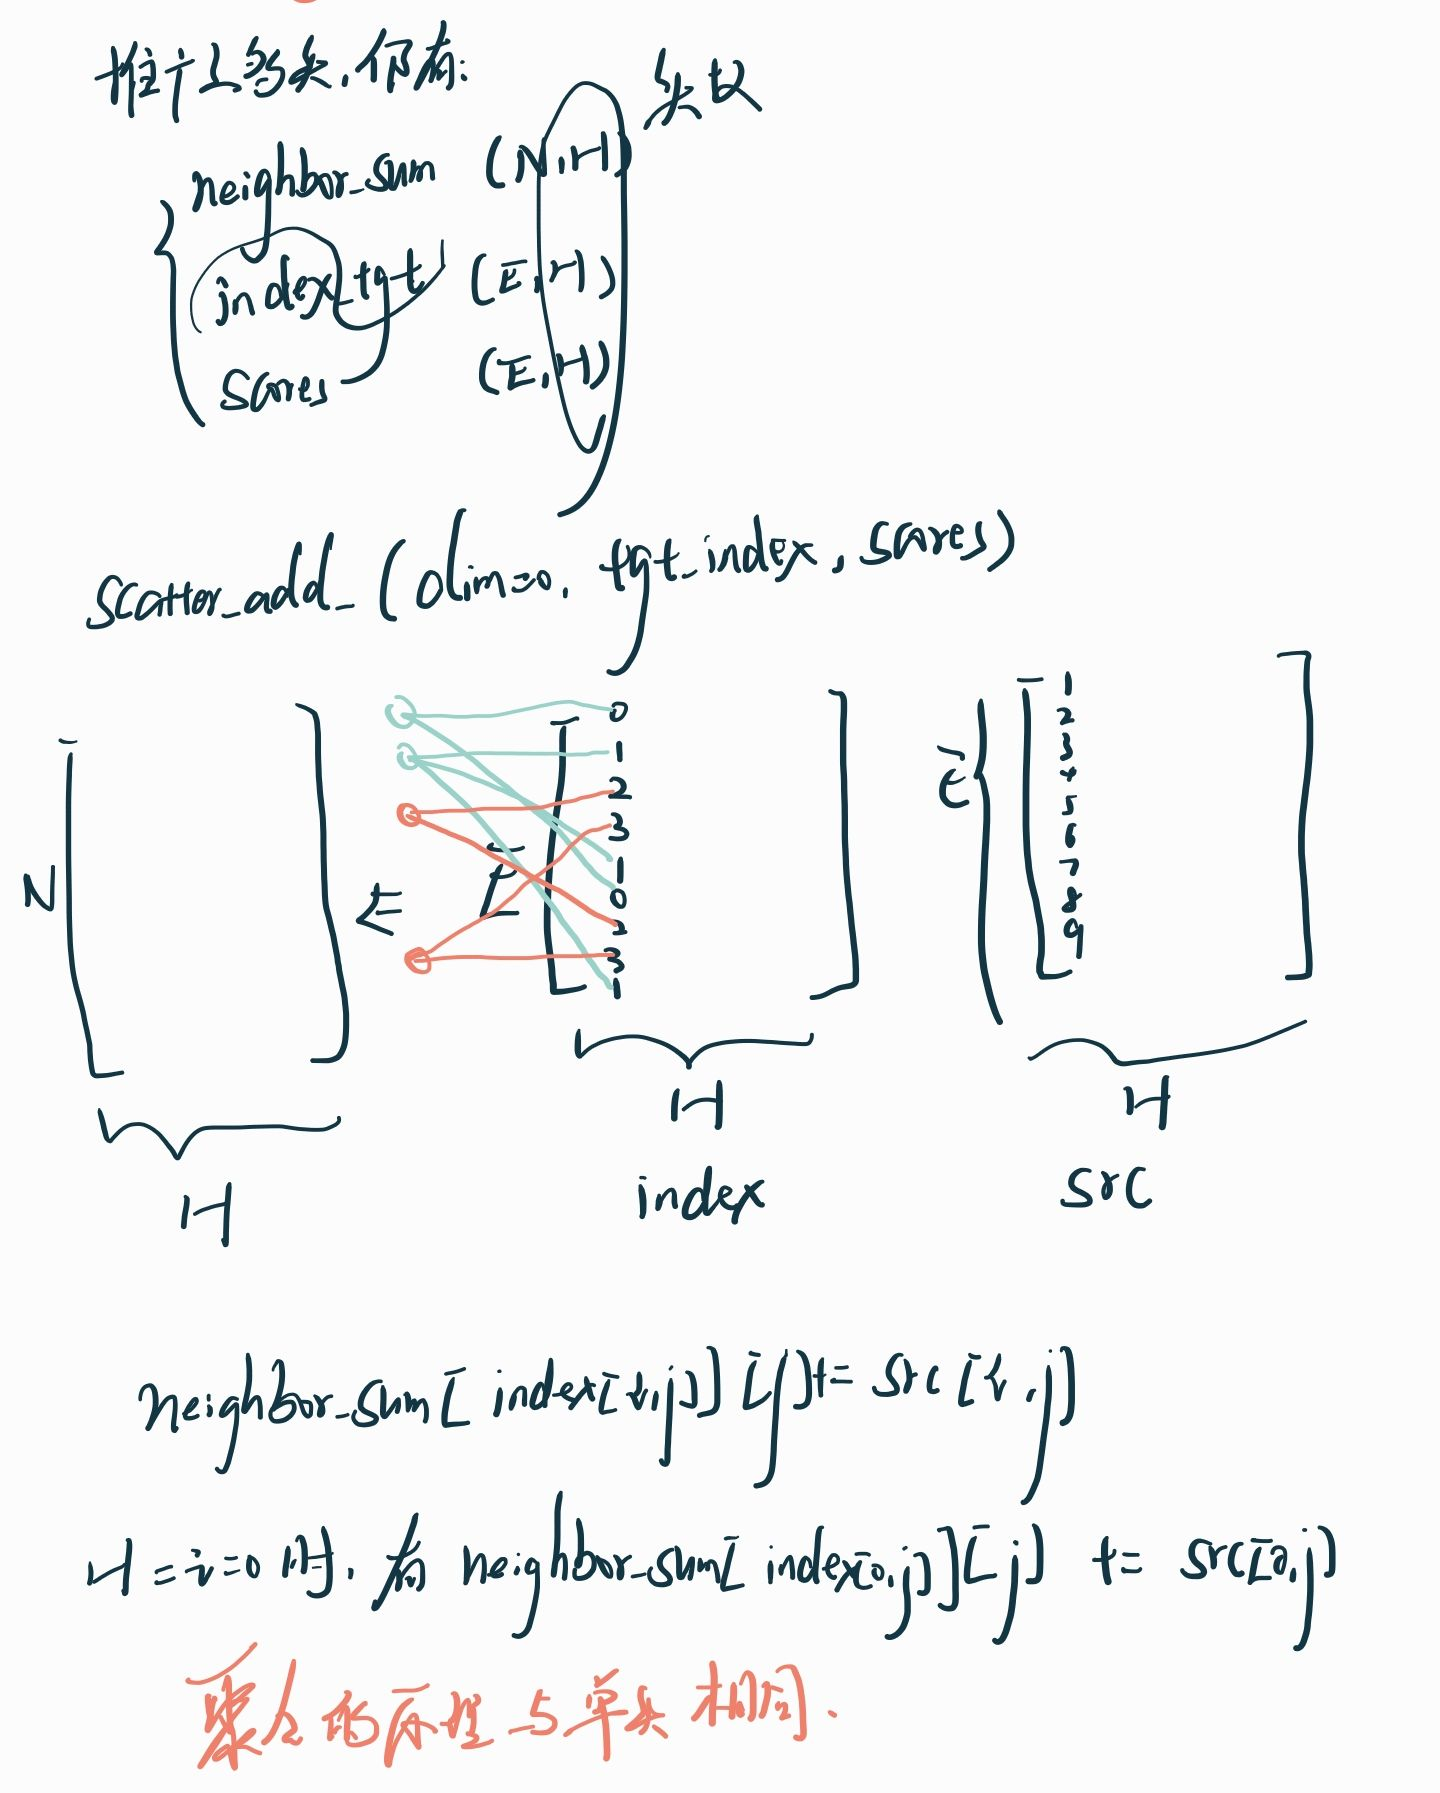 推广之多头,仍有:
头数
neighbor_sum (N,H)
index_tgt (E,H)
scores (E,H)
scatter_add_(dim=0, tgt_index, scores)
N
H
E
0
1
2
3
1
0
2
3
1
H
index
E
1
2
3
4
5
6
7
8
9
H
src
neighbor_sum[index[i,j]][j] += src[i,j]
H=i=0时,有 neighbor_sum[index[0,j]][j] += src[0,j]
聚合的原理与单头相同.